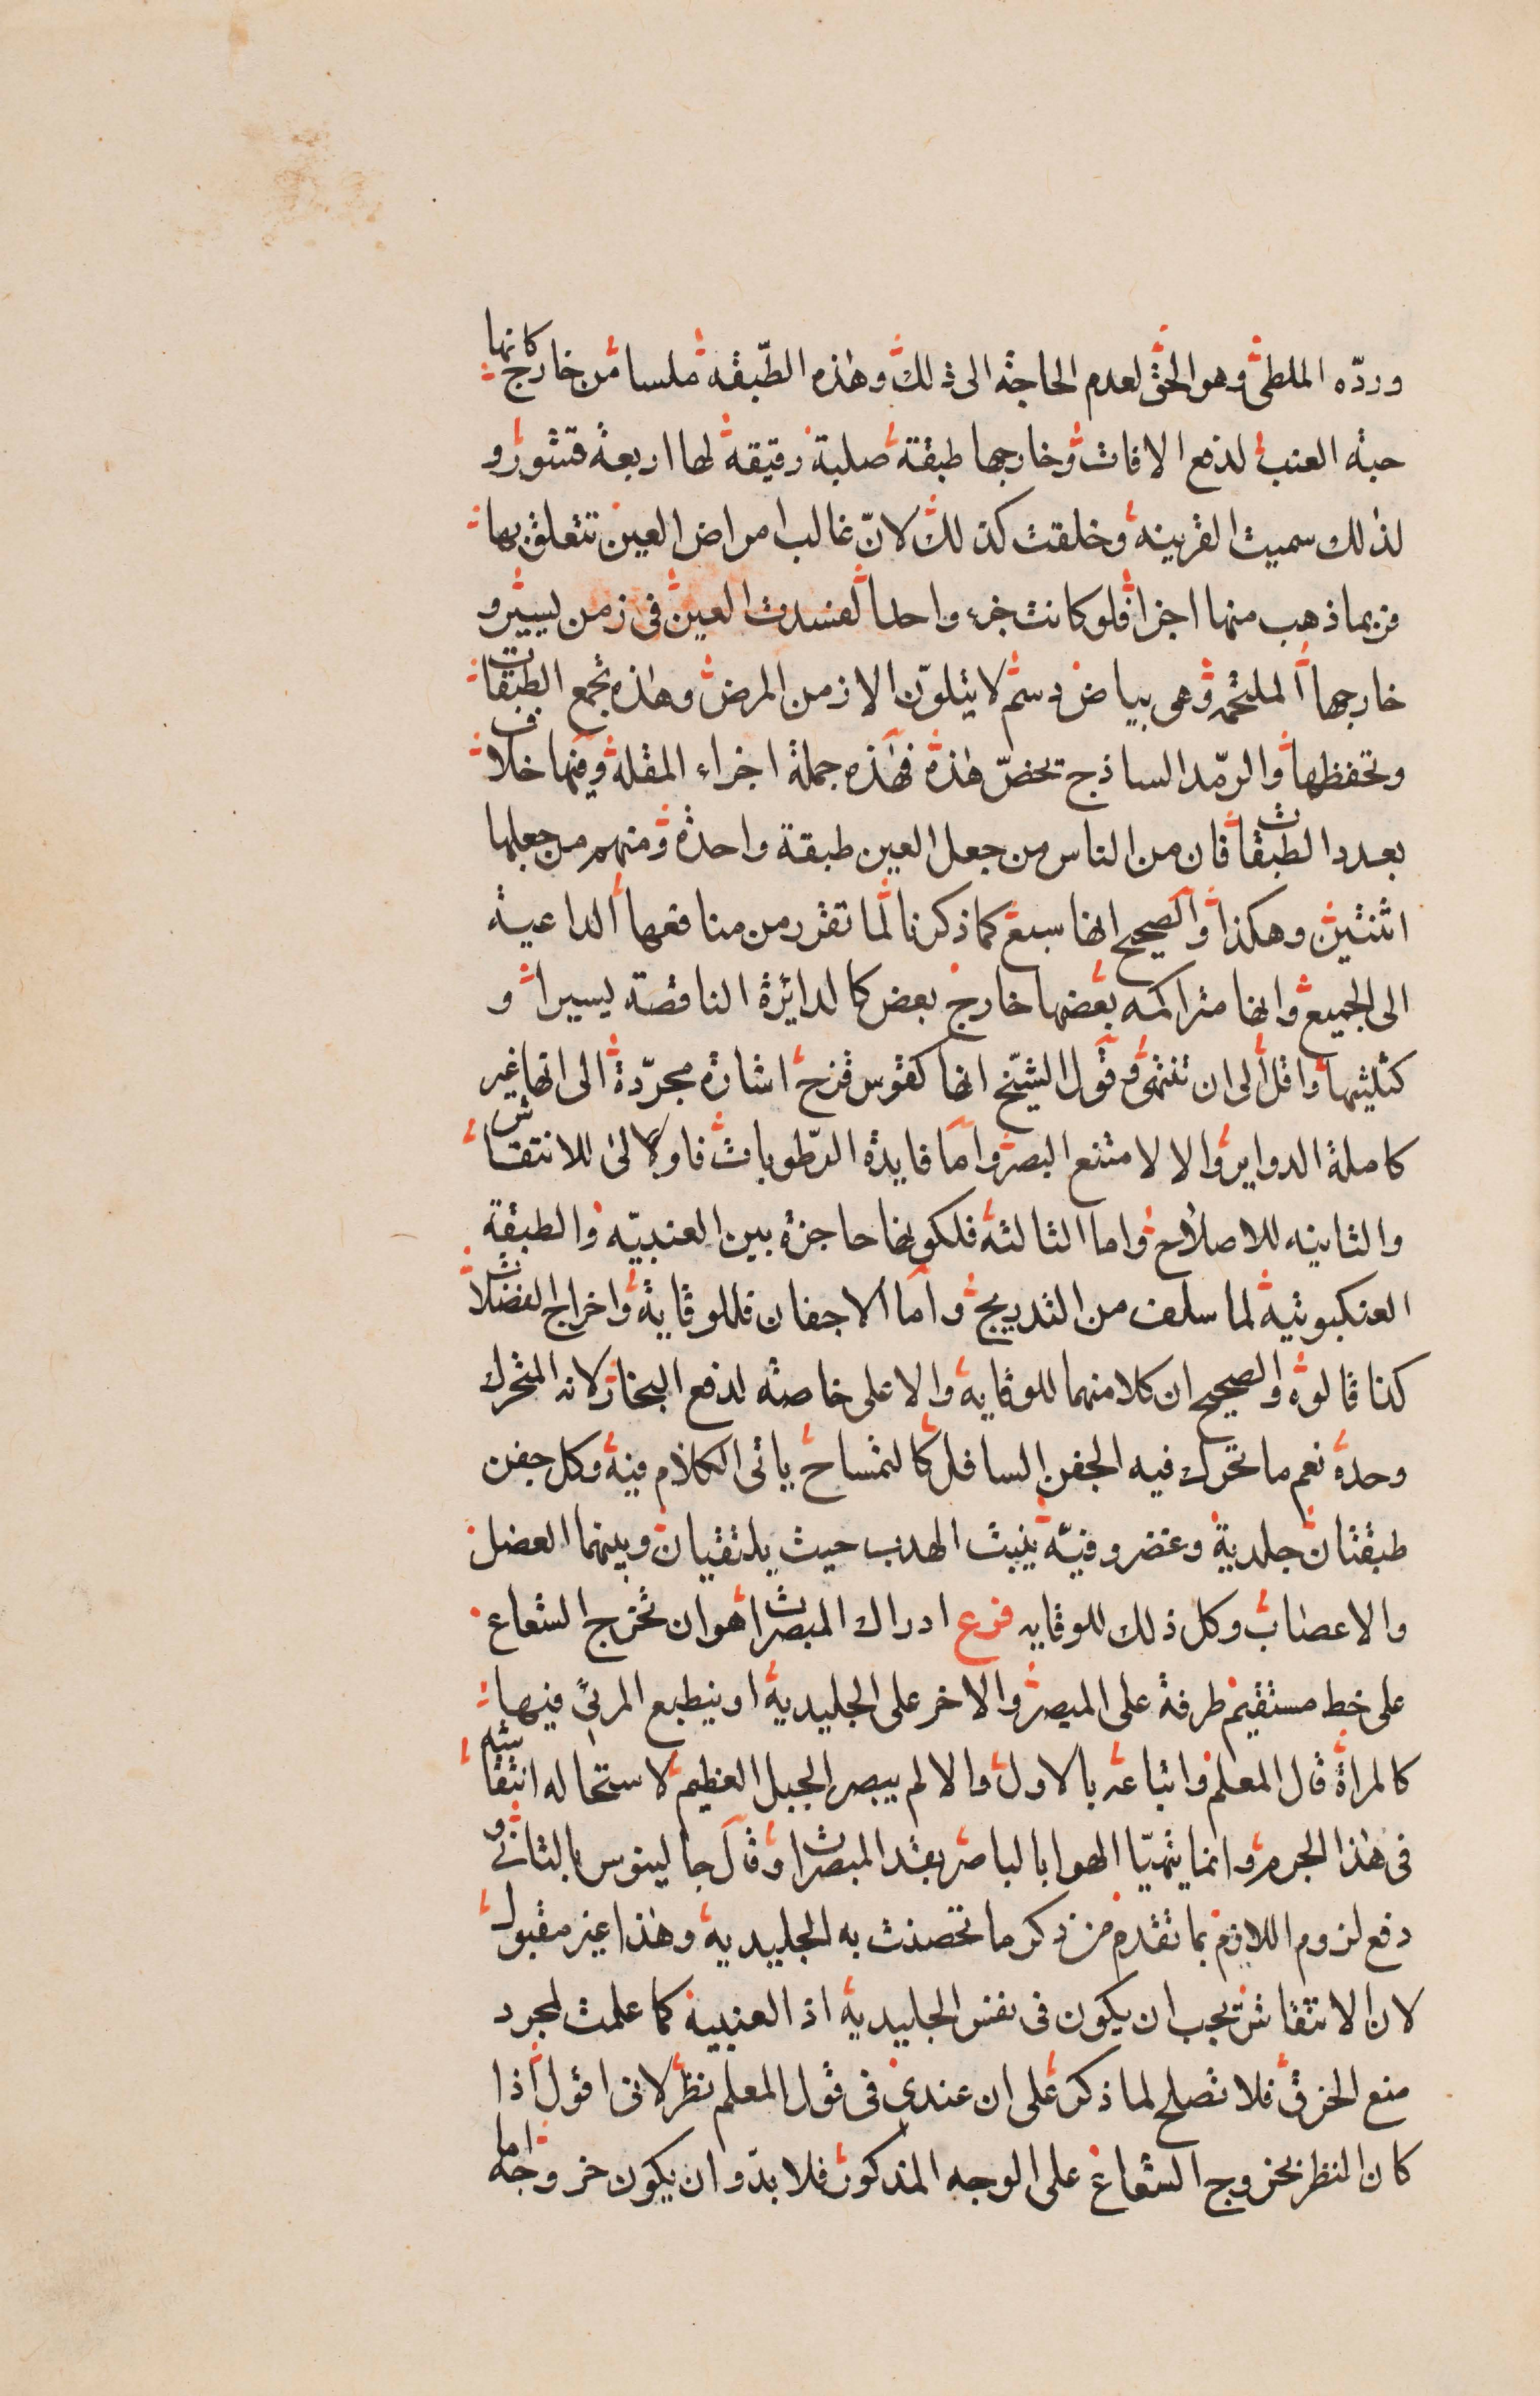 وردّه الملطى وهو الحق لعدم الحاجة الى ذلك وهذه الطّبقه ملسا من خارج كانها
حبة العنب لدفع الافات وخارجها طبقة صلبة رقيقة لها اربعة قشور و
لذلك سميت القرنيه وخلقت كذلك لانّ غالب امراض العين تتعلق بها
فربما ذهب منها اجزا فلو كانت جزء واحدا لفسدت العين فى زمن يسير و
خارجها الملتحمه وهى بياض دسم لا يتلوّن الا زمن المرض وهذه تجمع الطبقات
وتحفظها والرمّد الساذج تخصّ هذه فهذه جملة اجزاء المقلة وفيها خلاف
بعدد الطبقات فان من الناس من جعل العين طبقة واحدة ومنهم من جعلها
اثنتين وهكذا والصحيح انها سبع كما ذكرنا لما تقرر من منافعها الداعية
الى الجميع وانها متراكمه بعضها خارج بعض كالدائرة الناقصة يسيرا و
كثلثيها واقل الى ان تنتهى وقول الشيّخ انها كقوس قزح اشارة مجرّدة الى انها غير
كاملة الدواير والا لامتنع البصر واما فايدة الرّطوبات فاولا لى للانتقاش
والثانيه للاصلاح واما الثالثة فلكونها حاجزة بين العنبيّه والطبقة
العنكبوتية لما سلف من التدريج واما الاجفان فللوقاية واخراج الفضلات
كذا قالوه والصحيح ان كلا منهما للوقايه والاعلى خاصة لدفع البخار لانه المتحرك
وحده نعم ما تحرك فيه الجفن السافل كالتمساح ياتى الكلام فيه وكل جفن
طبقتان جلدية وغضروفيّه ينبت الهدب حيث يلتقيان وبينهما العضل
والاعصاب وكل ذلك للوقايه فرع ادراك المبصرات اهو ان تخرج الشعاع
على خط مستقيم طرفة على المبصر والاخر على الجليدية او ينطبع المرئى فيها
كالمراة قال المعلم واتباعه بالاول والا لم يبصر الجبل العظيم لاستحاله انتقاشه
فى هذا الجرم وانما يتهيّا الهوا بالباصر بقدر المبصرات وقال جالينوس بالثانى و
دفع لزوم اللازم بما تقدم من ذكر ما تحصنت به الجليدية وهذا غير مقبول
لان الانتقاش يجب ان يكون فى نفس الجليدية اذ العنبية كما علمت لمجرد
منع الخرق فلا تصلح لما ذكر على ان عندى فى قول المعلم نظر لانى اقول اذا
كان النظر بخروج الشعاع على الوجه المذكور فلا بدّ وان يكون خروجه اما